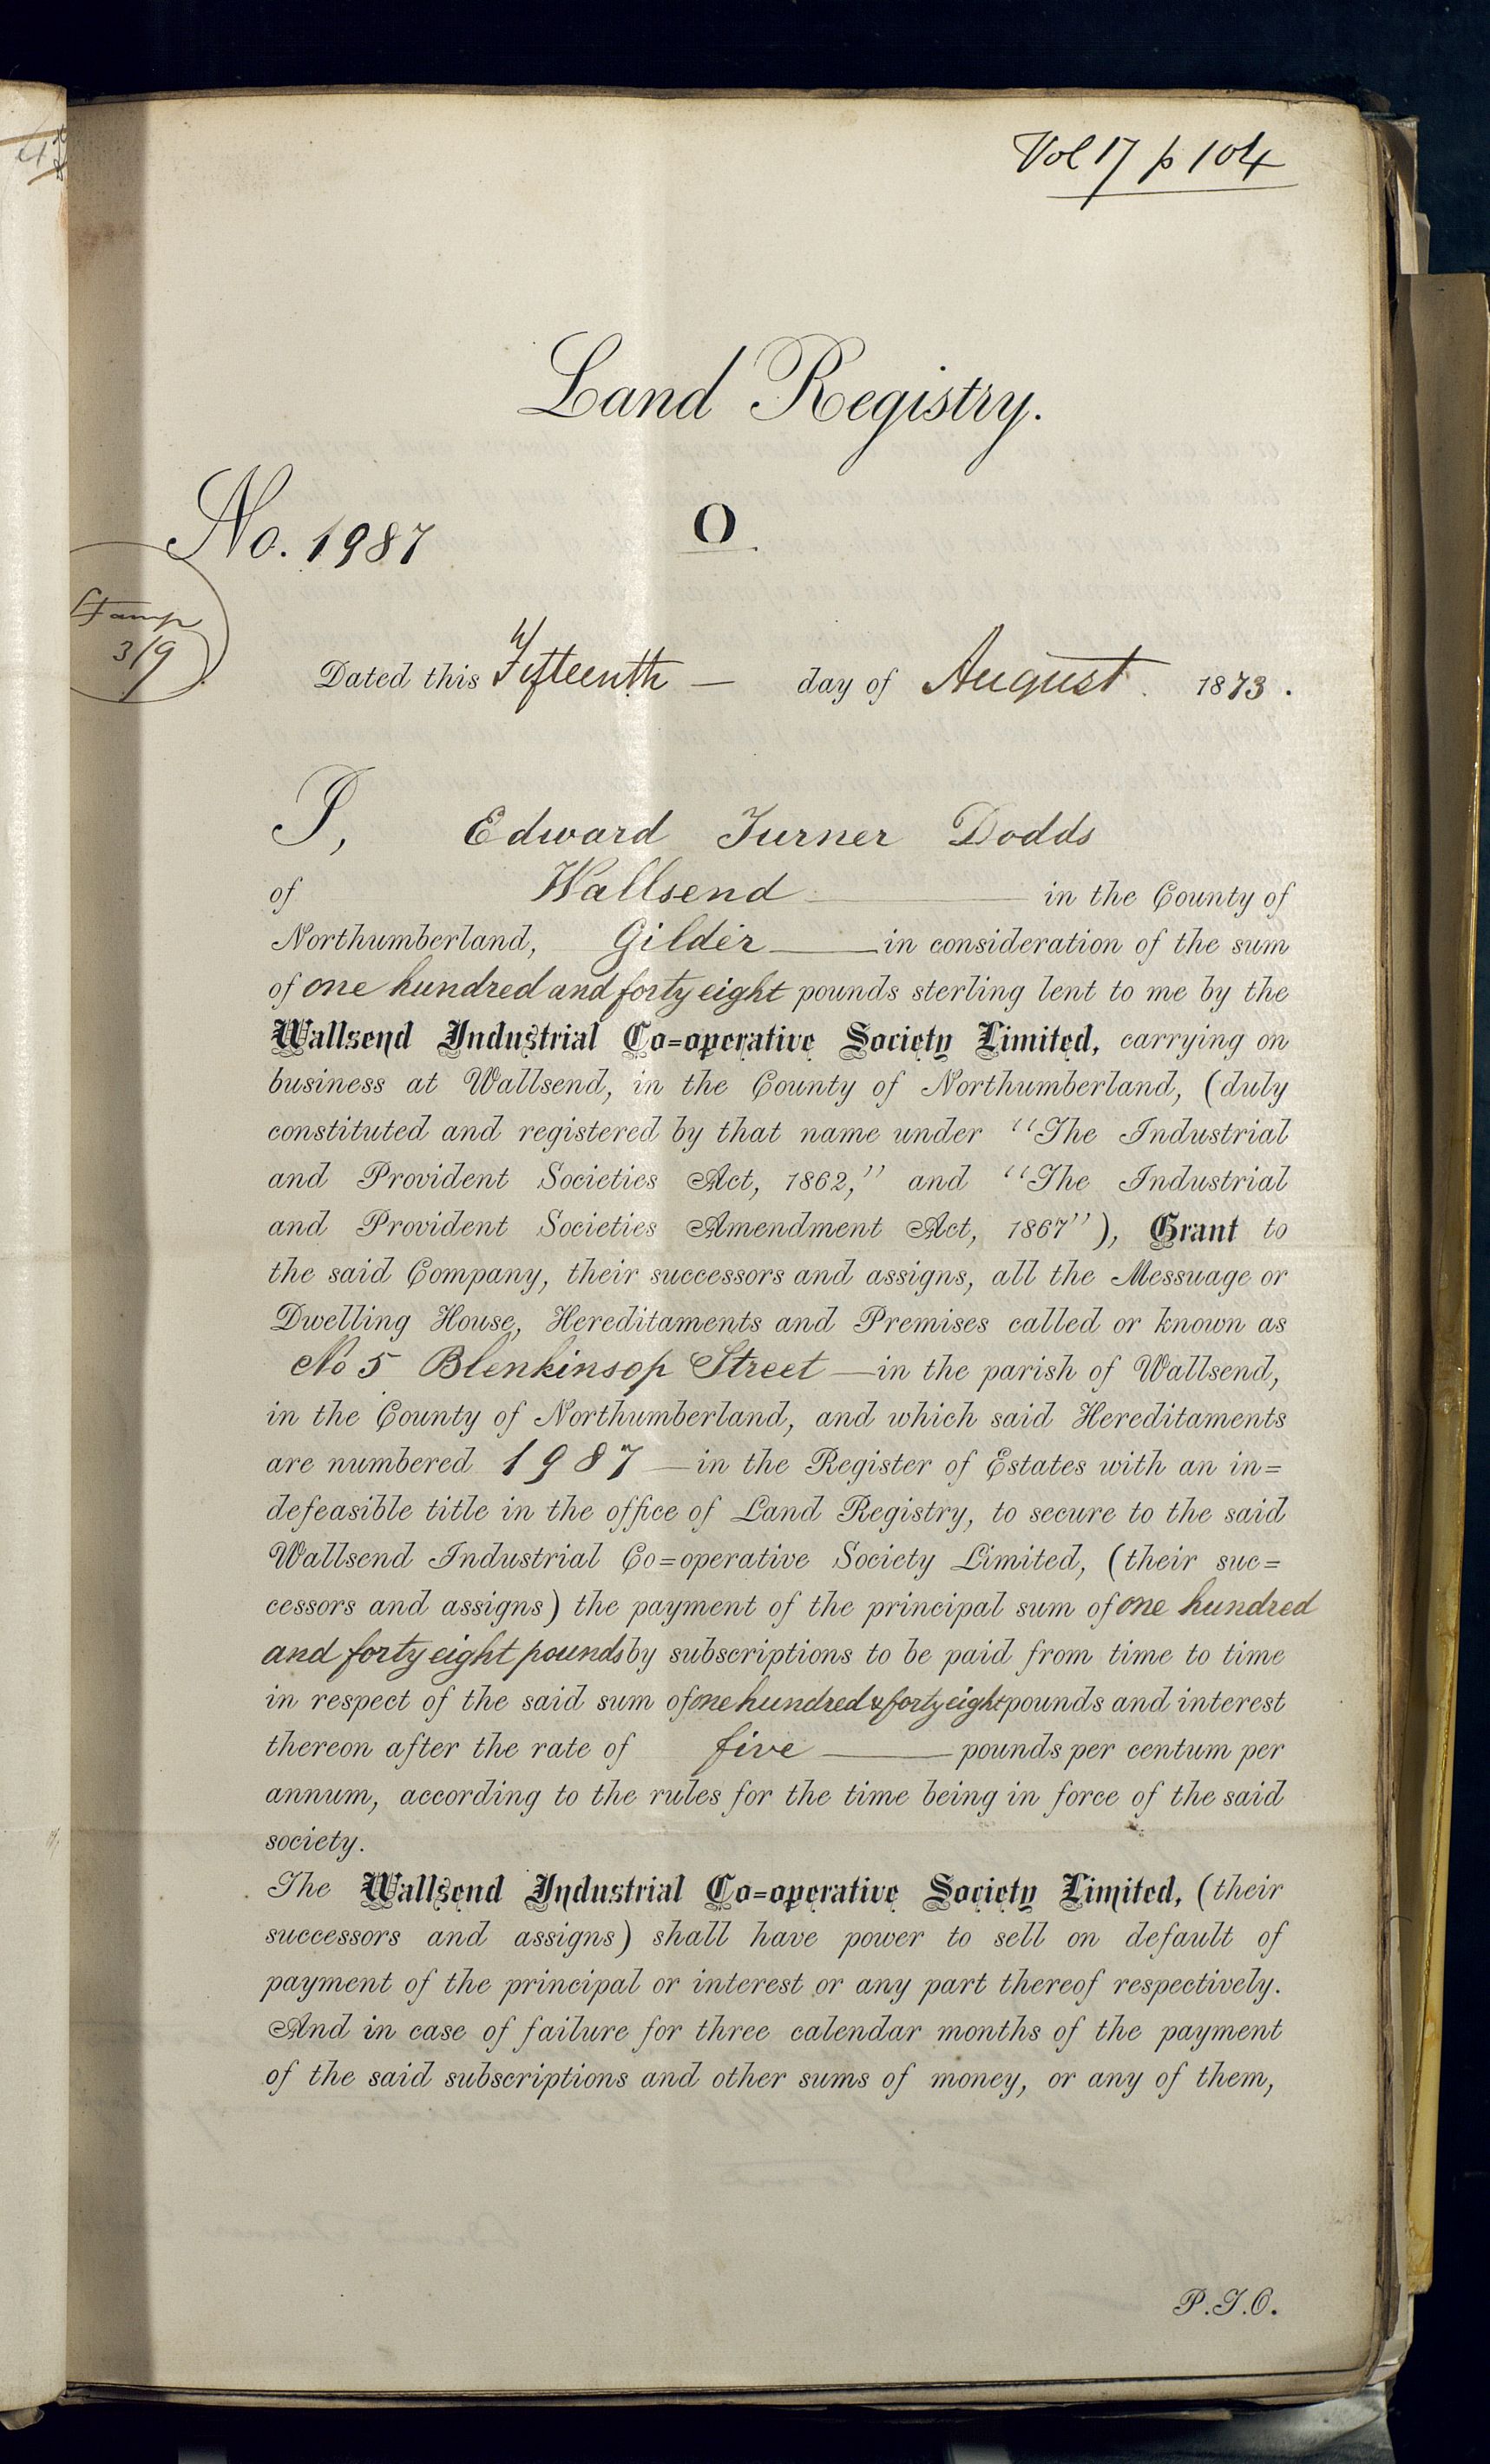 Vol 17 p 104
Land Registry.
No. 1987
O.
Stamp
3/9
Dated this Fifteenth — day of August 1873.
I, Edward Turner Dodds
of Wallsend in the County of
Northumberland, Gilder in consideration of the sum
of one hundred and forty eight pounds sterling lent to me by the
Wallsend Industrial Co=operative Society Limited, carrying on
business at Wallsend, in the County of Northumberland, (duly
constituted and registered by that name under "The Industrial
and Provident Societies Act, 1862," and "The Industrial
and Provident Societies Amendment Act, 1867"), Grant to
the said Company, their successors and assigns, all the Messuage or
Dwelling House, Hereditaments and Premises called or known as
No 5 Blenkinsop Street — in the parish of Wallsend,
in the County of Northumberland, and which said Hereditaments
are numbered 1987 — in the Register of Estates with an in=
defeasible title in the office of Land Registry, to secure to the said
Wallsend Industrial Co=operative Society Limited, (their suc=
cessors and assigns) the payment of the principal sum of one hundred
and forty eight pounds by subscriptions to be paid from time to time
in respect of the said sum of one hundred & forty eight pounds and interest
thereon after the rate of five — pounds per centum per
annum, according to the rules for the time being in force of the said
society.
The Wallsend Industrial Co=operative Society Limited, (their
successors and assigns) shall have power to sell on default of
payment of the principal or interest or any part thereof respectively.
And in case of failure for three calendar months of the payment
of the said subscriptions and other sums of money, or any of them,
P.T.O.